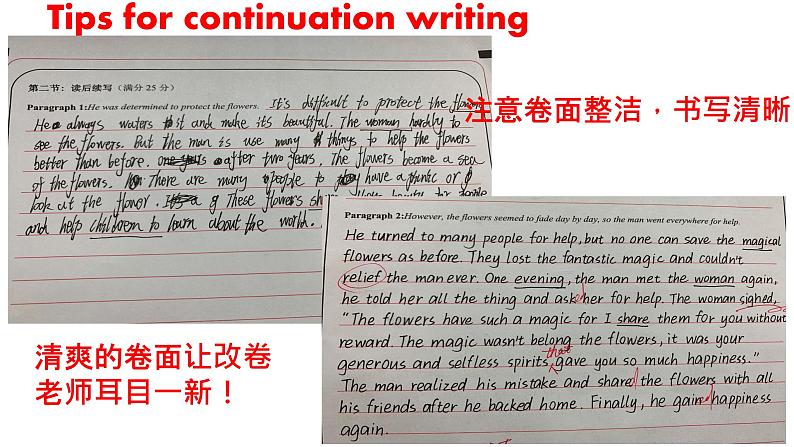 Tips for continuation writing
第二节：读后续写（满分 25 分）
Paragraph 1:He was determined to protect the flowers. It's difficult to protect the flowers.
He always waters it and make its beautiful. The woman hardly to
see the flowers. But the man is use many things to help the flowers
better than before. after two years. The flowers become a sea
of the flowers. There are many people to have a picnic or
look at the flower. These flowers
and help children to learn about the world.
注意卷面整洁，书写清晰
Paragraph 2:However, the flowers seemed to fade day by day, so the man went everywhere for help.
He turned to many people for help, but no one can save the magical
flowers as before. They lost the fantastic magic and couldn't
relief the man ever. One evening, the man met the woman again,
he told her all the thing and asked her for help. The woman sighed,
"The flowers have such a magic for I share them for you without
reward. The magic wasn't belong the flowers, it was your
generous and selfless spirits that gave you so much happiness."
The man realized his mistake and shared the flowers with all
his friends after he backed home. Finally, he gained happiness
again.
清爽的卷面让改卷
老师耳目一新！